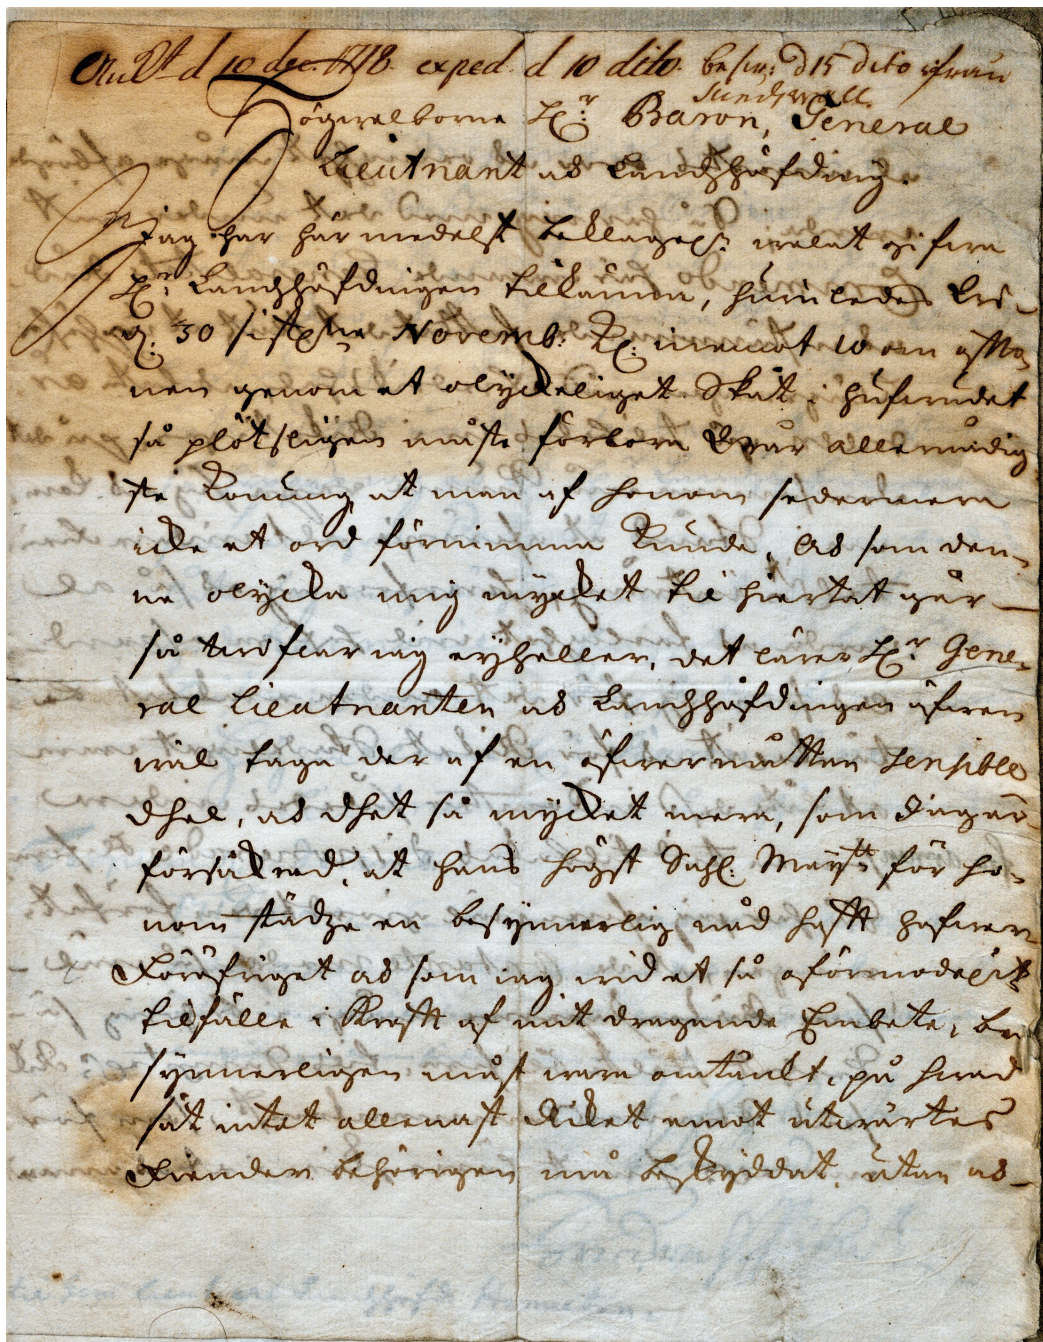 d 10 dec. 1718. exped. d 10 dito. besw: d 15 dito ifrån
Sundzwall
Högwelborne H:r Baron, General
Lieutnant och Landzhöfding.
Jag har härmedelst beklagel: welat gifwa
H:r Landzhöfdingen tillkänna, huruledes
d. 30 sistl:ne Novemb: Kl: inemot 10 om afto-
nen genom et olyckeliget Skåt i hufwudet
så plötsligen måste förlora wår allernådig-
ste Konung, at man af honom sedermera
icke et ord förnimma kunde, och som den-
ne olycka mig mycket til hiertat går
så twiflar iag eyheller, det lärer H:r Gene-
ral Lieutnanten och Landzhöfdingen äfwen
wäl taga der af en öfwermåttan sensible
dhel, och dhet så mycket mera, som
försäkrad, at hans högst Sahl: Maij:tt för ho-
nom städze en besynnerlig nåd hafft hafwer
Föröfriget och som iag wid et så oförmodeligt
tilfälle i krafft af mit dragande Embete, be-
synnerligen måst wara omtänkt, på hwad
sät intet allenast Riket emot utwärtes
Fiender behörigen må beskyddat, utan och